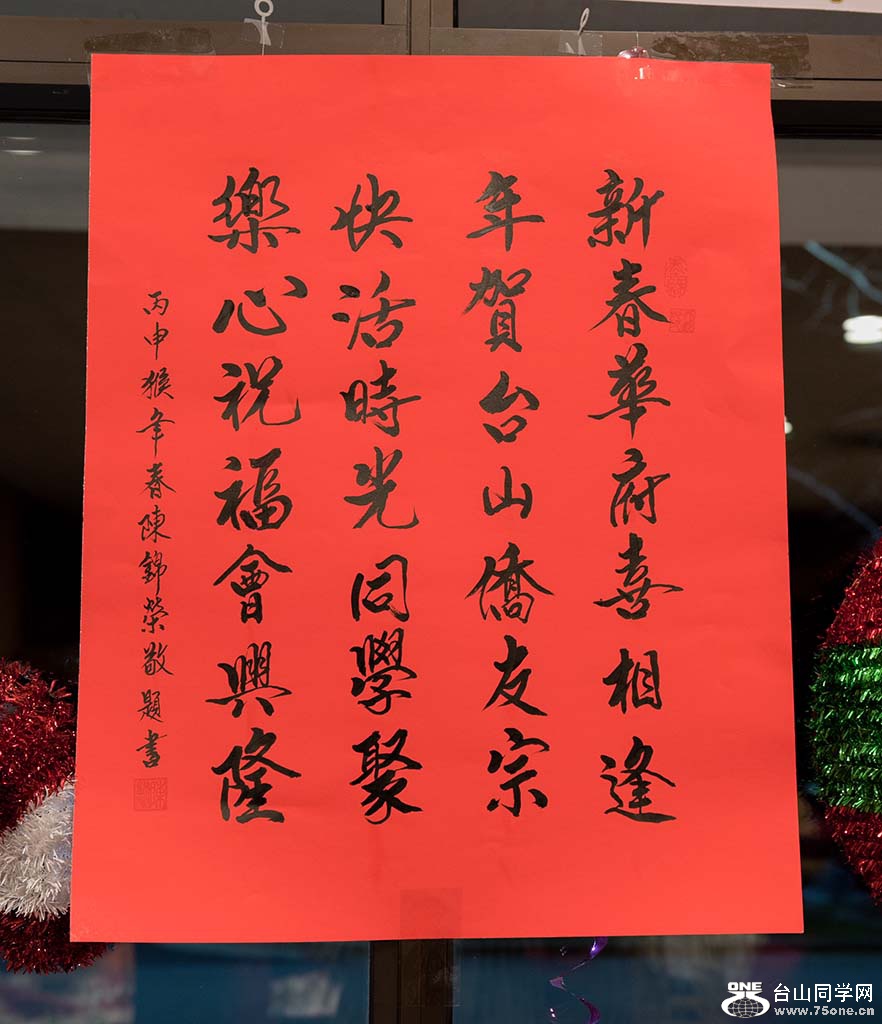 新春華府喜相逢
年賀台山僑友宗
快活時光同學聚
樂心祝福會興隆
丙申猴年春陳錦榮敬題書
ONE 台山同学网
www.75one.cn